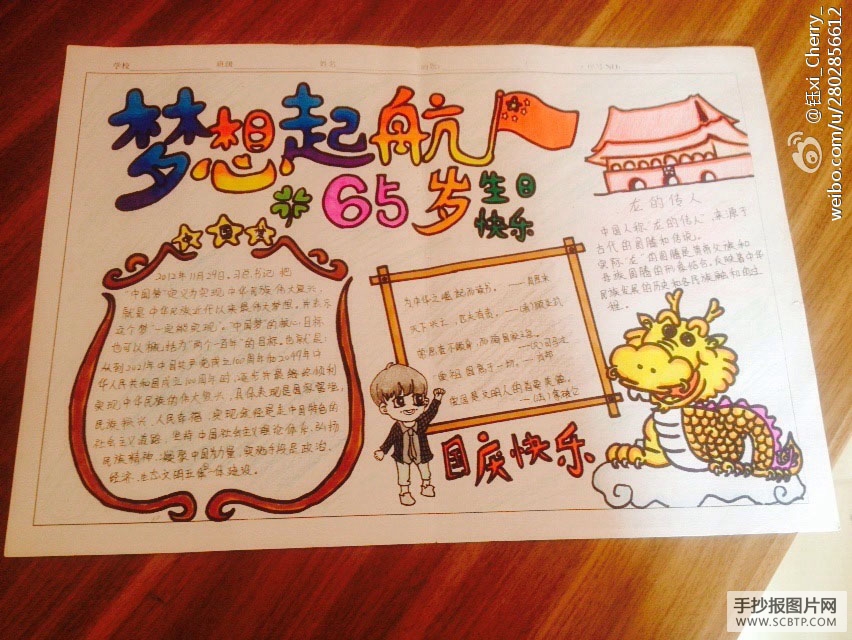 学校
姓名
梦想起航
65岁生日
快乐
中国梦
2012年11月29日,习总书记把
"中国梦"定义为实现中华民族伟大复兴,
就是中华民族近代以来最伟大梦想,并表示
这个梦"一定能实现"。"中国梦"的核心目标
也可以概括为"两个一百年"的目标,也就是:
从到2021年中国共产党成立100周年和2049年中
华人民共和国成立100周年时,逐步并最终顺利
实现中华民族的伟大复兴,具体表现是国家富强,
民族振兴,人民幸福,实现途径是走中国特色的
社会主义道路,坚持中国社会主义理论体系,弘扬
民族精神,凝聚中国力量,实施手段是政治,
经济,生态文明五位一体建设。
为中华之崛起而读书。
天下兴亡,匹夫有责。
常思奋不顾身,而殉国家之急。
爱国是文明人的首要美德。
国庆快乐
龙的传人
中国人称"龙的传人",来源于
古代由图腾和传说。
实际"龙"的图腾是黄族父族和
各族图腾的形象结合,反映着中华
民族发展的历史和各民族融和的过
程。
@钰xi_Cherry_
weibo.com/u/2802856612
手抄报图片网
WWW.SCBTP.COM